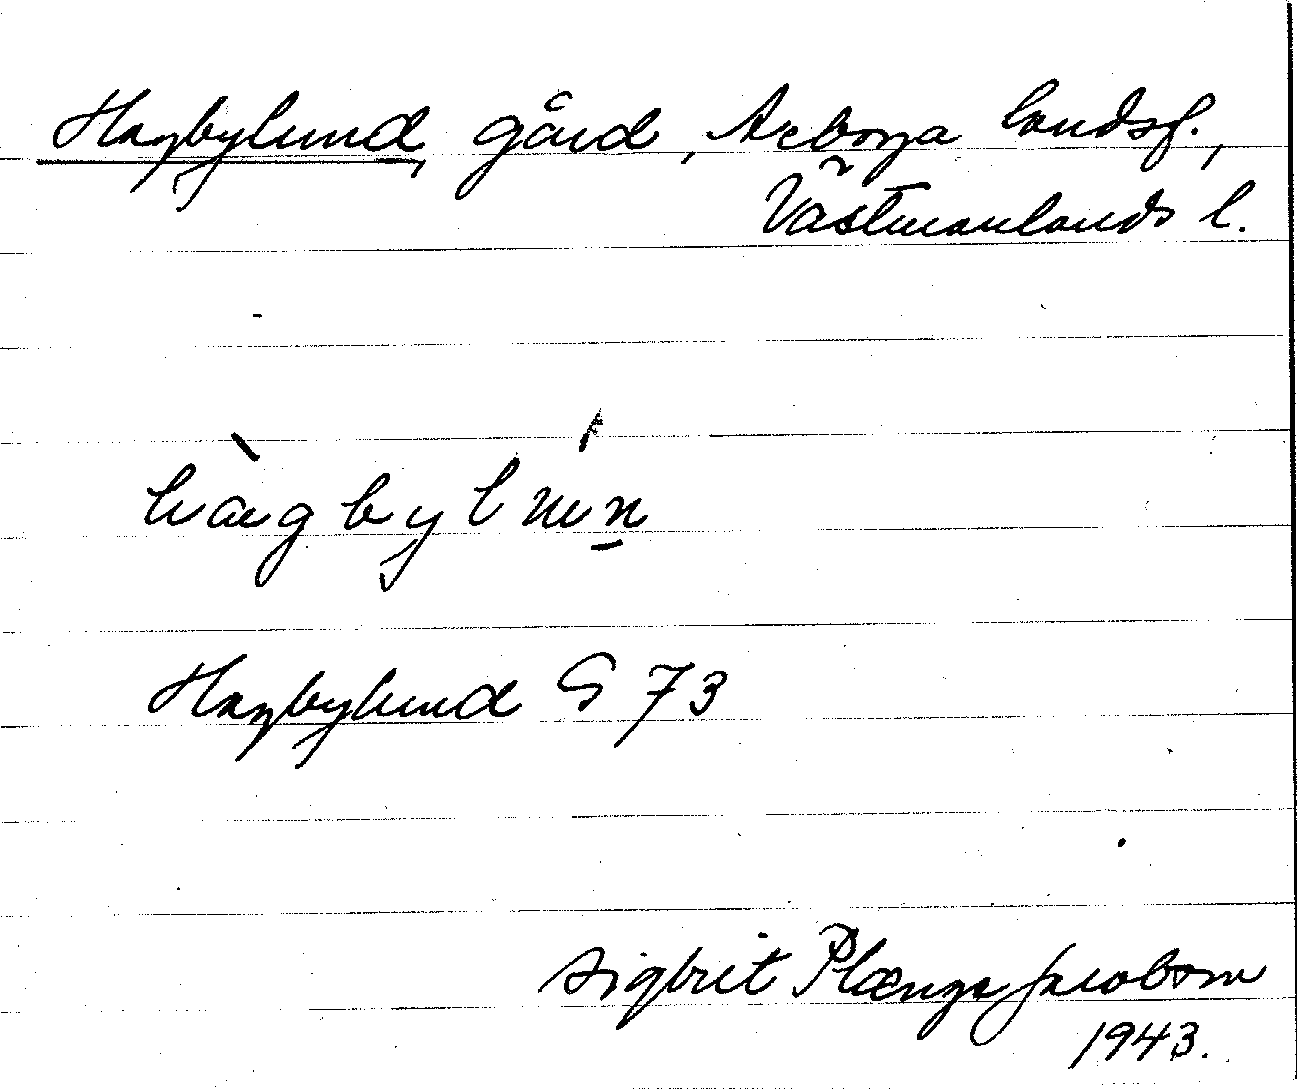 Hagbylund, gård, Arboga landsf.,
Västmanlands l.
hàgbylún̲
Hagbylund G 73
Sigbrit Plænge Jacobson
1943.